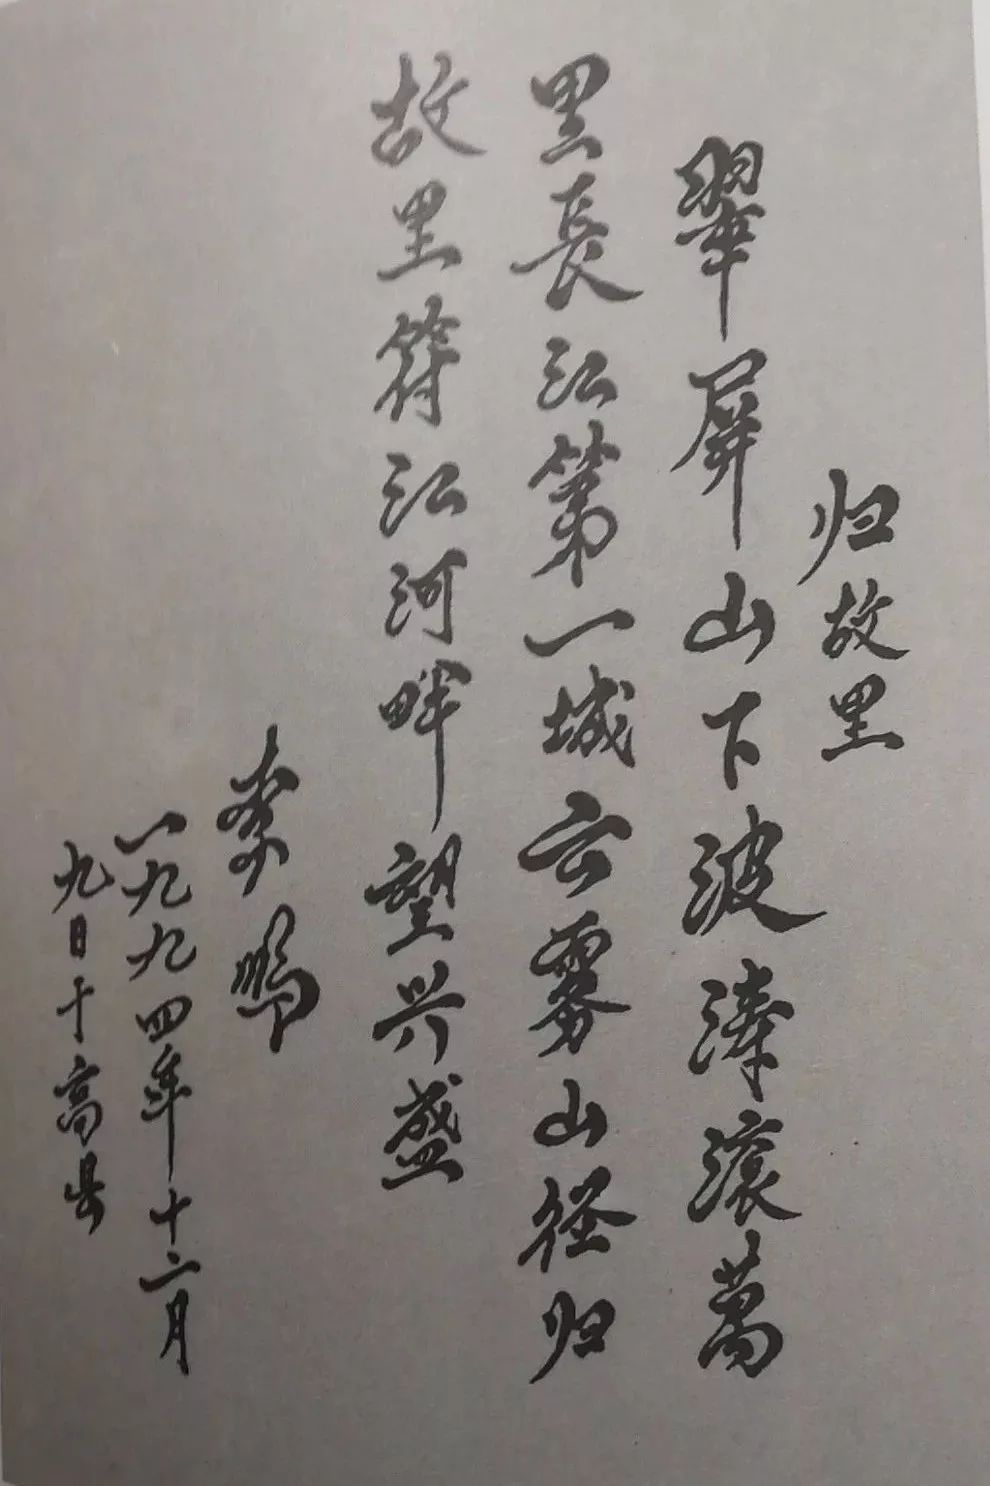 归故里
翠屏山下波涛滚萬
里长江第一城云雾山径归
故里符江河畔望兴盛
李鹏
一九九四年十二月
九日于高县